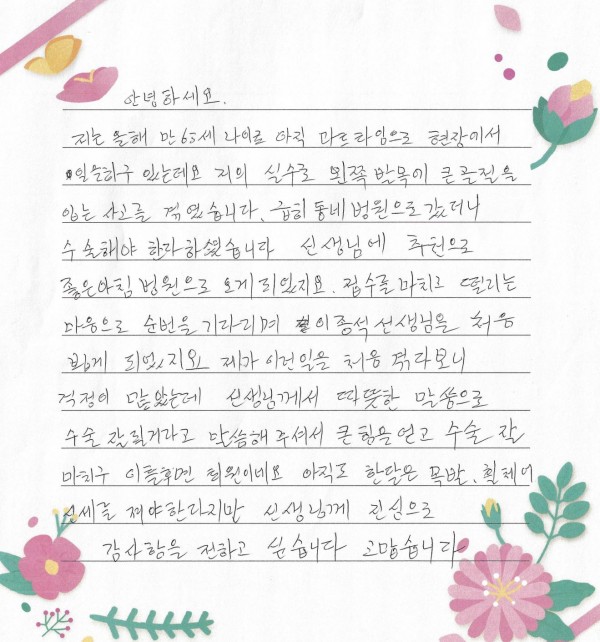 안녕하세요.
저는 올해 만 63세 나이로 아직 파트타임으로 현장에서
일을하구 있는데요 저의 실수로 왼쪽 발목에 큰골절을
입는 사고를 겪었습니다. 급히 동네병원으로 갔더니
수술해야 한다하셨습니다 선생님에 추천으로
좋은아침병원으로 오게되었지요. 접수를마치고 떨리는
마음으로 순번을 기다리며 이종석선생님을 처음
뵙게 되었지요 제가 이런일을 처음 겪다보니
걱정이 많았는데 선생님께서 따뜻한 말씀으로
수술 잘될거라고 말씀해주셔서 큰힘을얻고 수술 잘
마치구 이틀후면 퇴원이네요 아직도 한달은 목발, 휠체어
신세를 져야한다지만 선생님께 진심으로
감사함을 전하고 싶습니다 고맙습니다